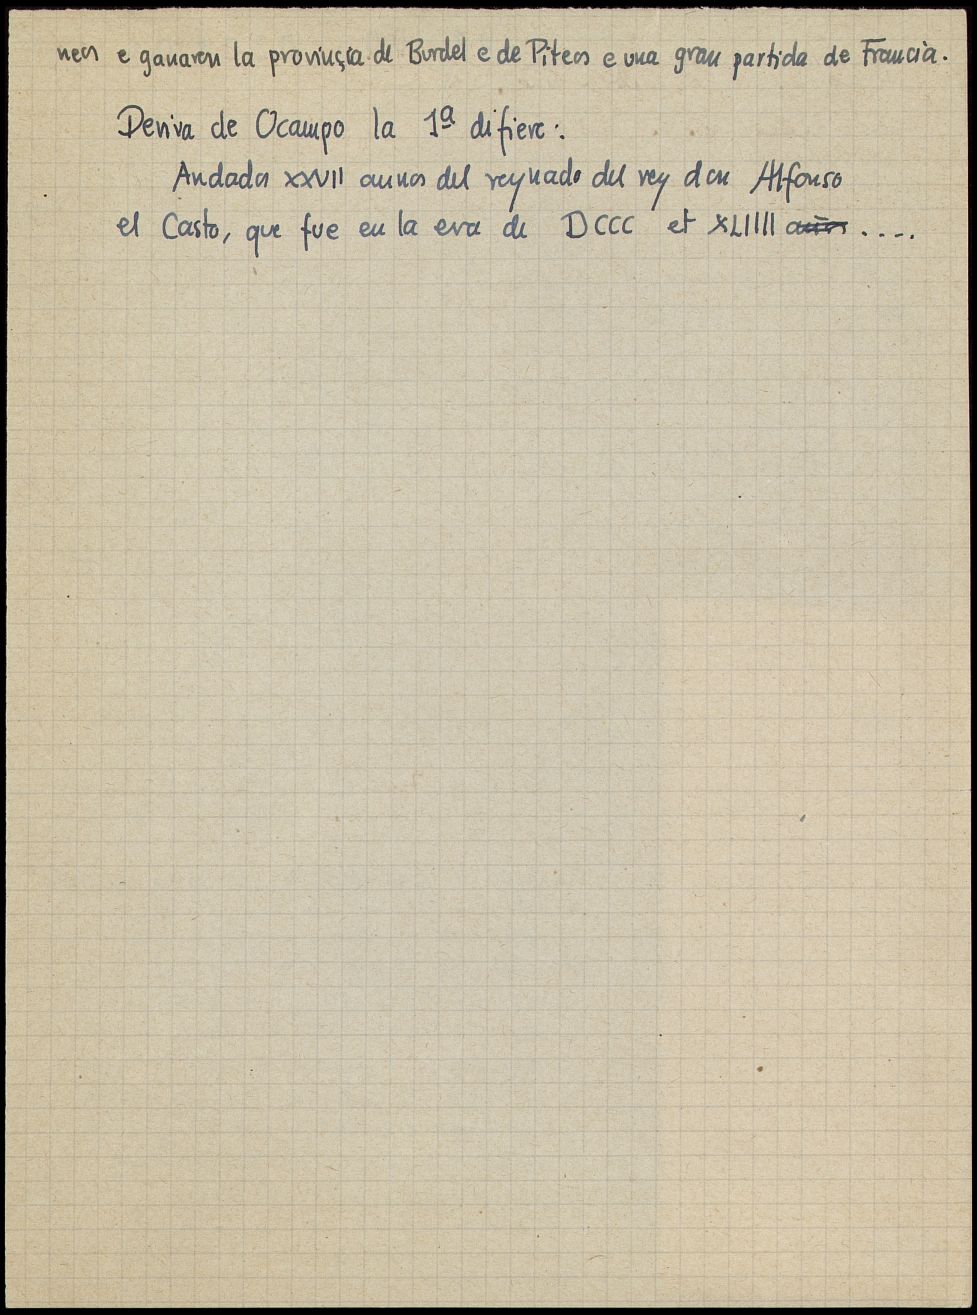 nees e ganaren la provinçia de Burdel e de Piteos e una gran partida de Francia.
Deriva de Ocampo la 1ª difiere:
Andados XXVII annos del reynado del rey don Alfonso
el Casto, que fue en la era de DCCC et XLIIII años ....